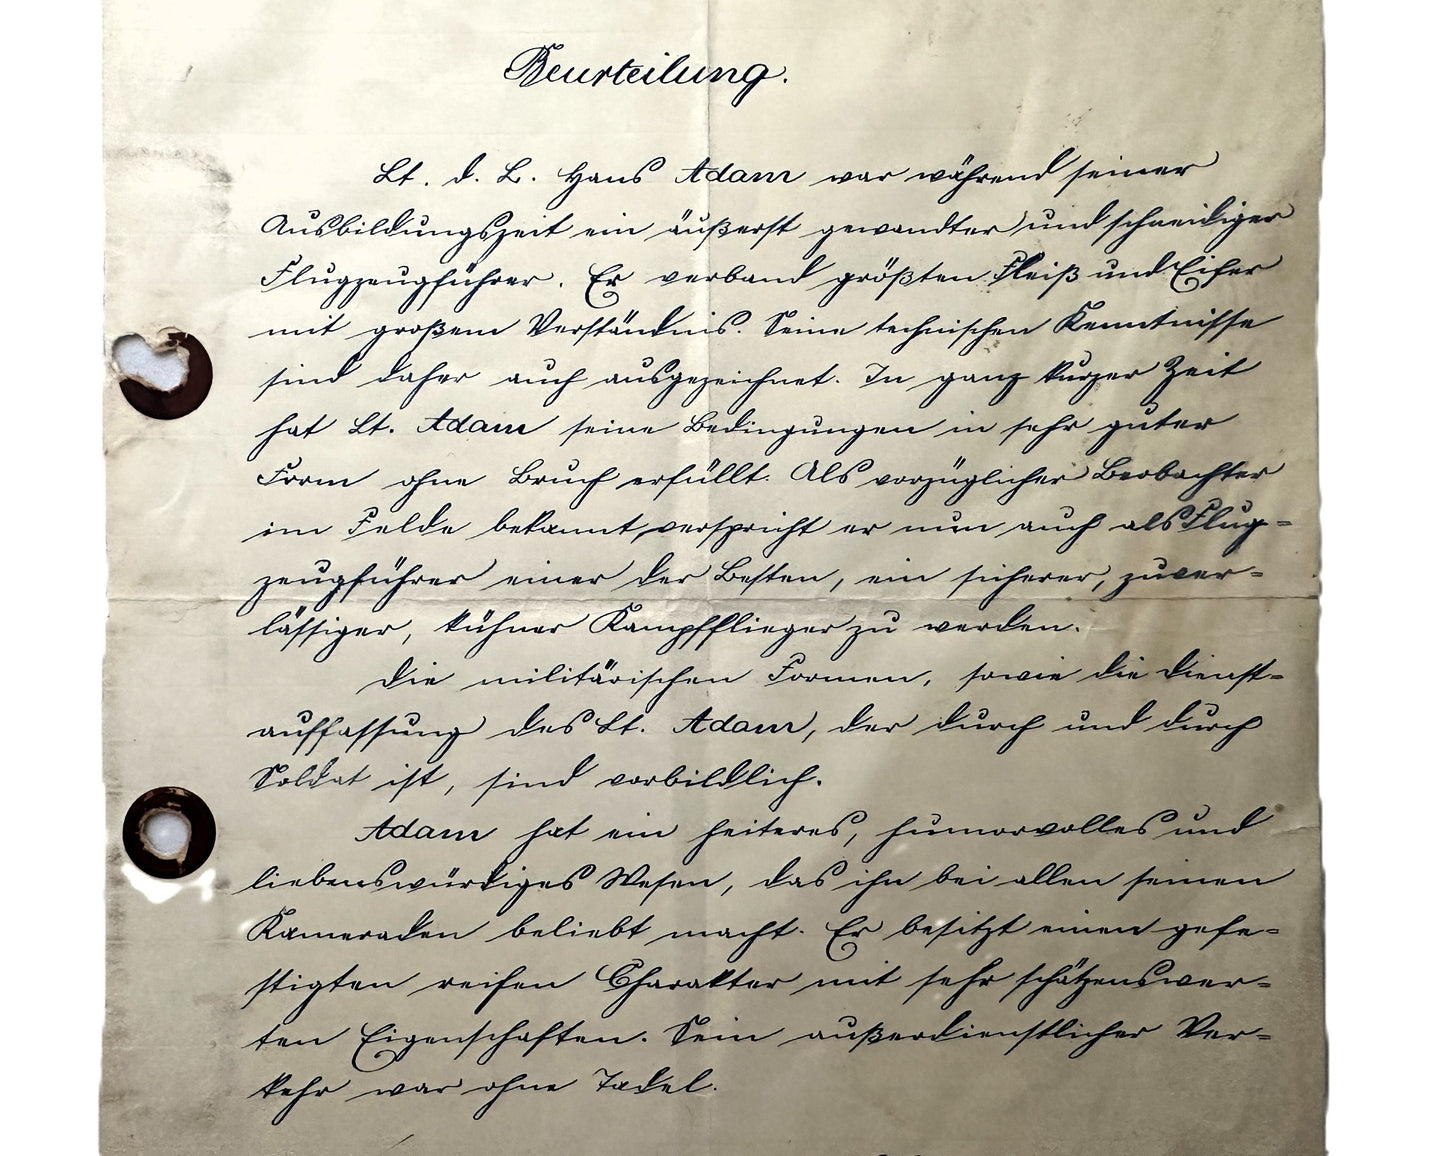 Beurteilung.
Lt. d. L. Hans Adam war während seiner
Ausbildungszeit ein äußerst gewandter und schneidiger
Flugzeugführer. Er verband größten Fleiß und Eifer
mit großem Verständnis. Seine technischen Kenntnisse
sind daher auch ausgezeichnet. In ganz kurzer Zeit
hat Lt. Adam seine Bedingungen in sehr guter
Form ohne Bruch erfüllt. Als vorzüglicher Beobachter
im Felde bekannt, verspricht er nun auch als Flug=
zeugführer einer der Besten, ein sicherer, zuver=
lässiger, kühner Kampfflieger zu werden.
Die militärischen Formen, sowie die Dienst=
auffassung des Lt. Adam, der durch und durch
Soldat ist, sind vorbildlich.
Adam hat ein heiteres, humorvolles und
liebenswürdiges Wesen, das ihn bei allen seinen
Kameraden beliebt macht. Er besitzt einen gefe=
stigten reifen Charakter mit sehr schätzenswer=
ten Eigenschaften. Sein außerdienstlicher Ver=
kehr war ohne Tadel.